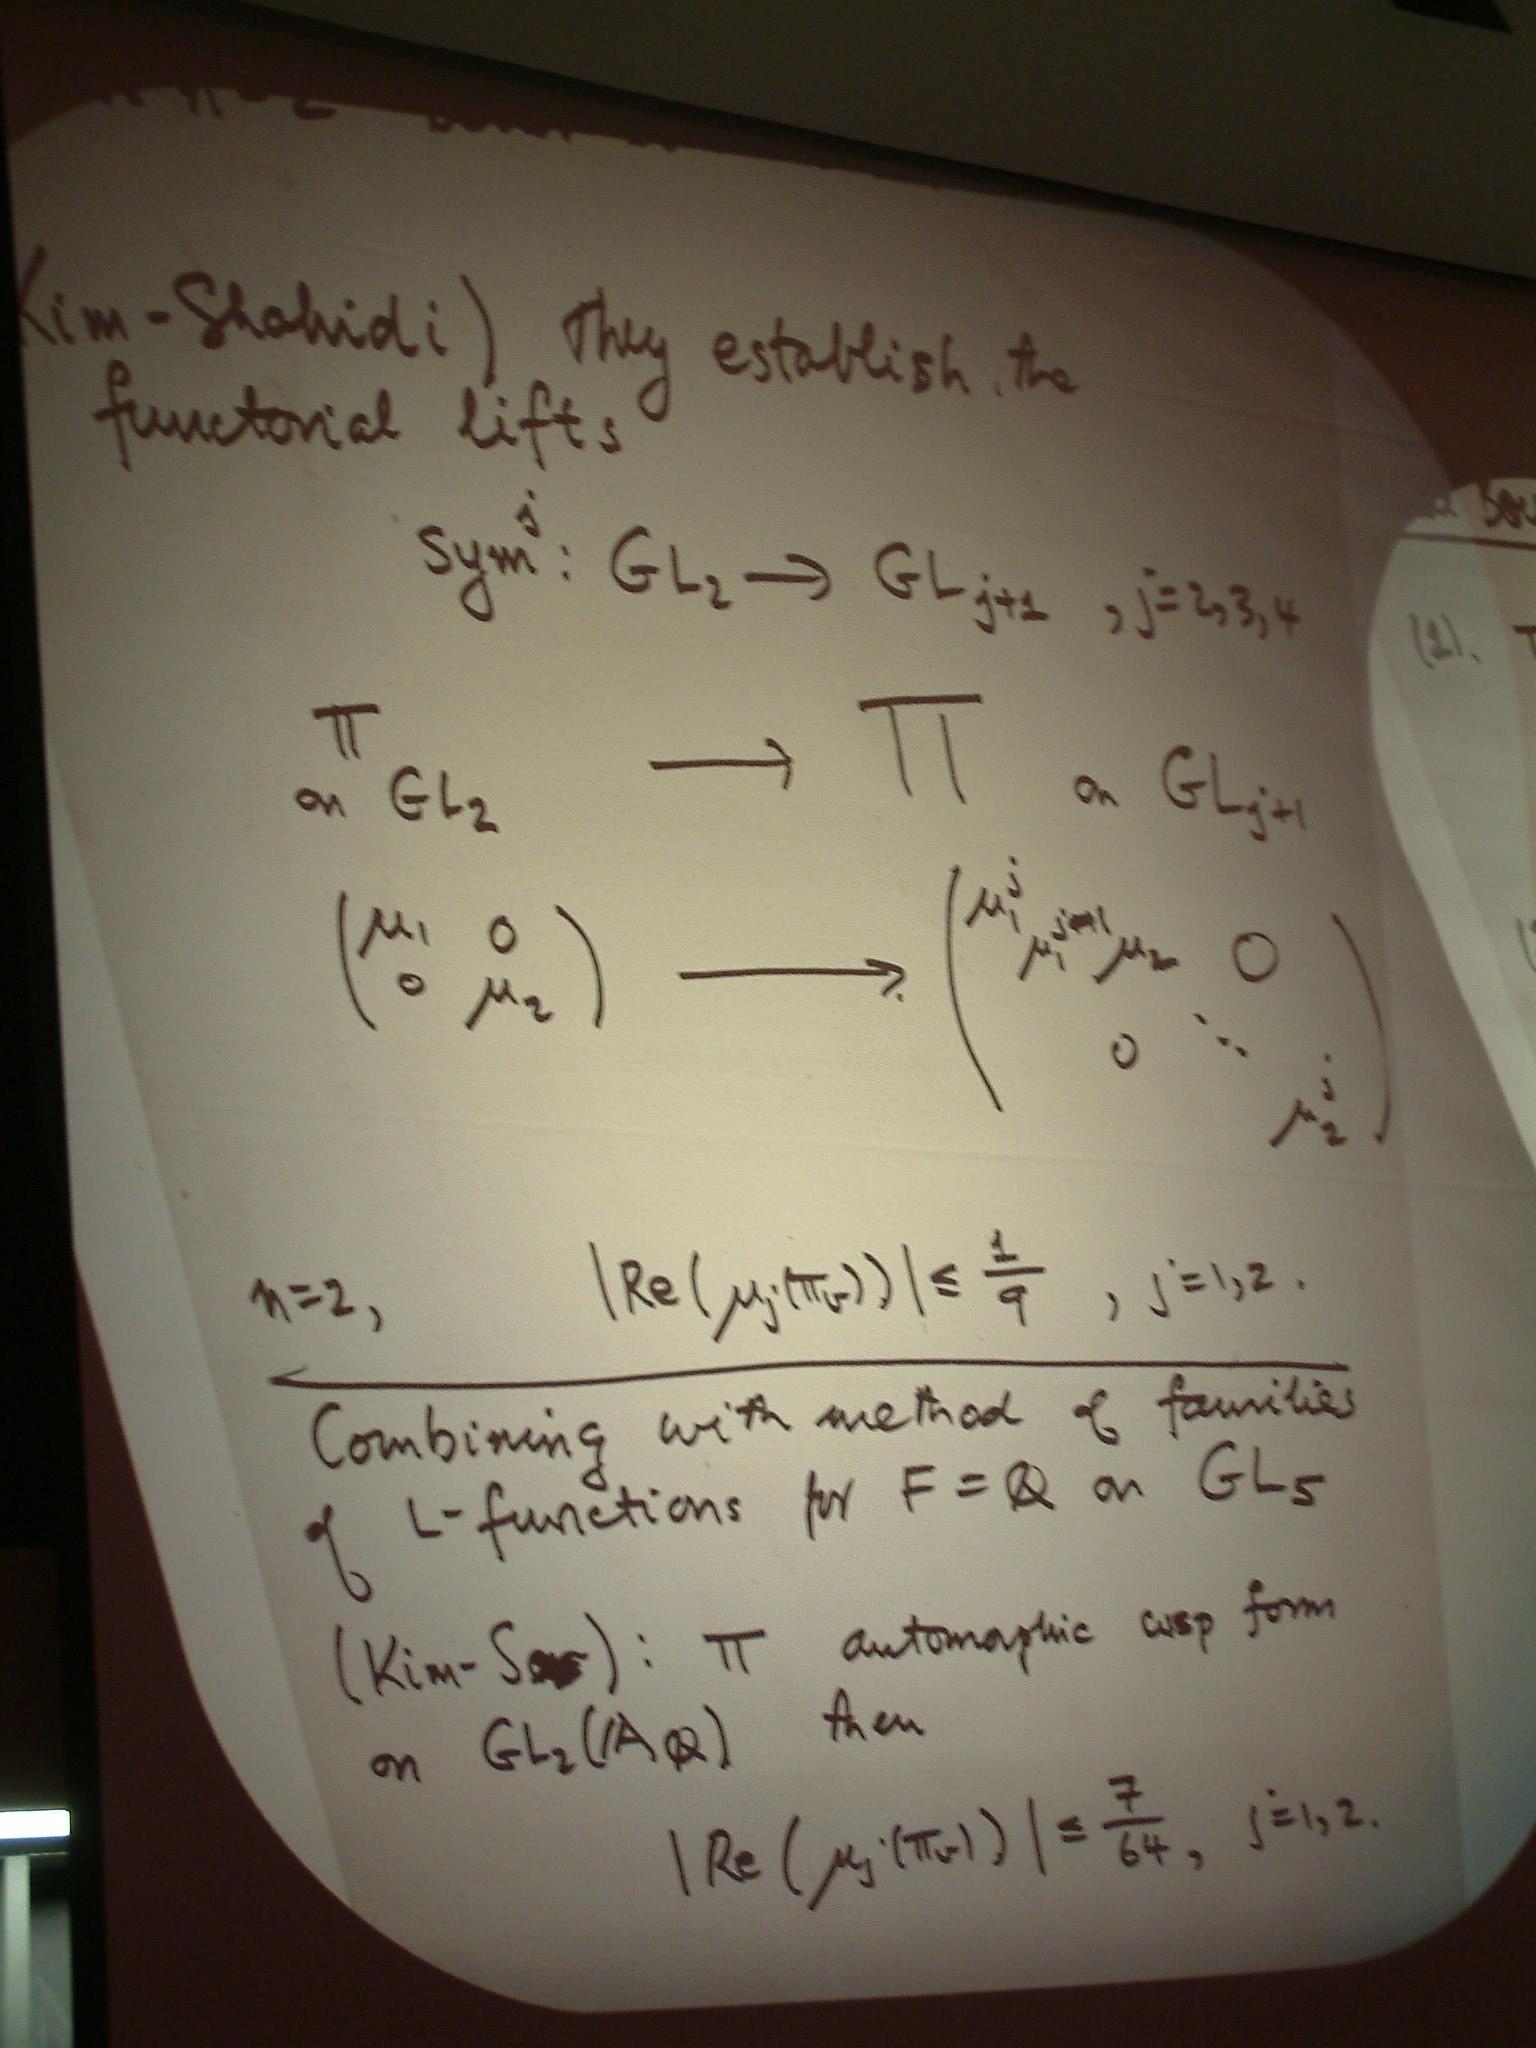 Kim-Shahidi) They establish the
functorial lifts
Sym^j : GL_2 → GL_{j+1} , j=2,3,4
π → Π
on GL_2 on GL_{j+1}
( μ_1 0 → ( μ_1^j μ_1^{j-1} μ_2 0
0 μ_2 ) 0 ⋱ μ_2^j )
n=2, |Re(μ_j(π_v))| ≤ 1/9 , j=1,2.
Combining with method of families
of L-functions for F = Q on GL_5
(Kim-S): π automorphic cusp form
on GL_2(A_Q) then
|Re(μ_j(π_v))| ≤ 7/64, j=1,2.
(1).